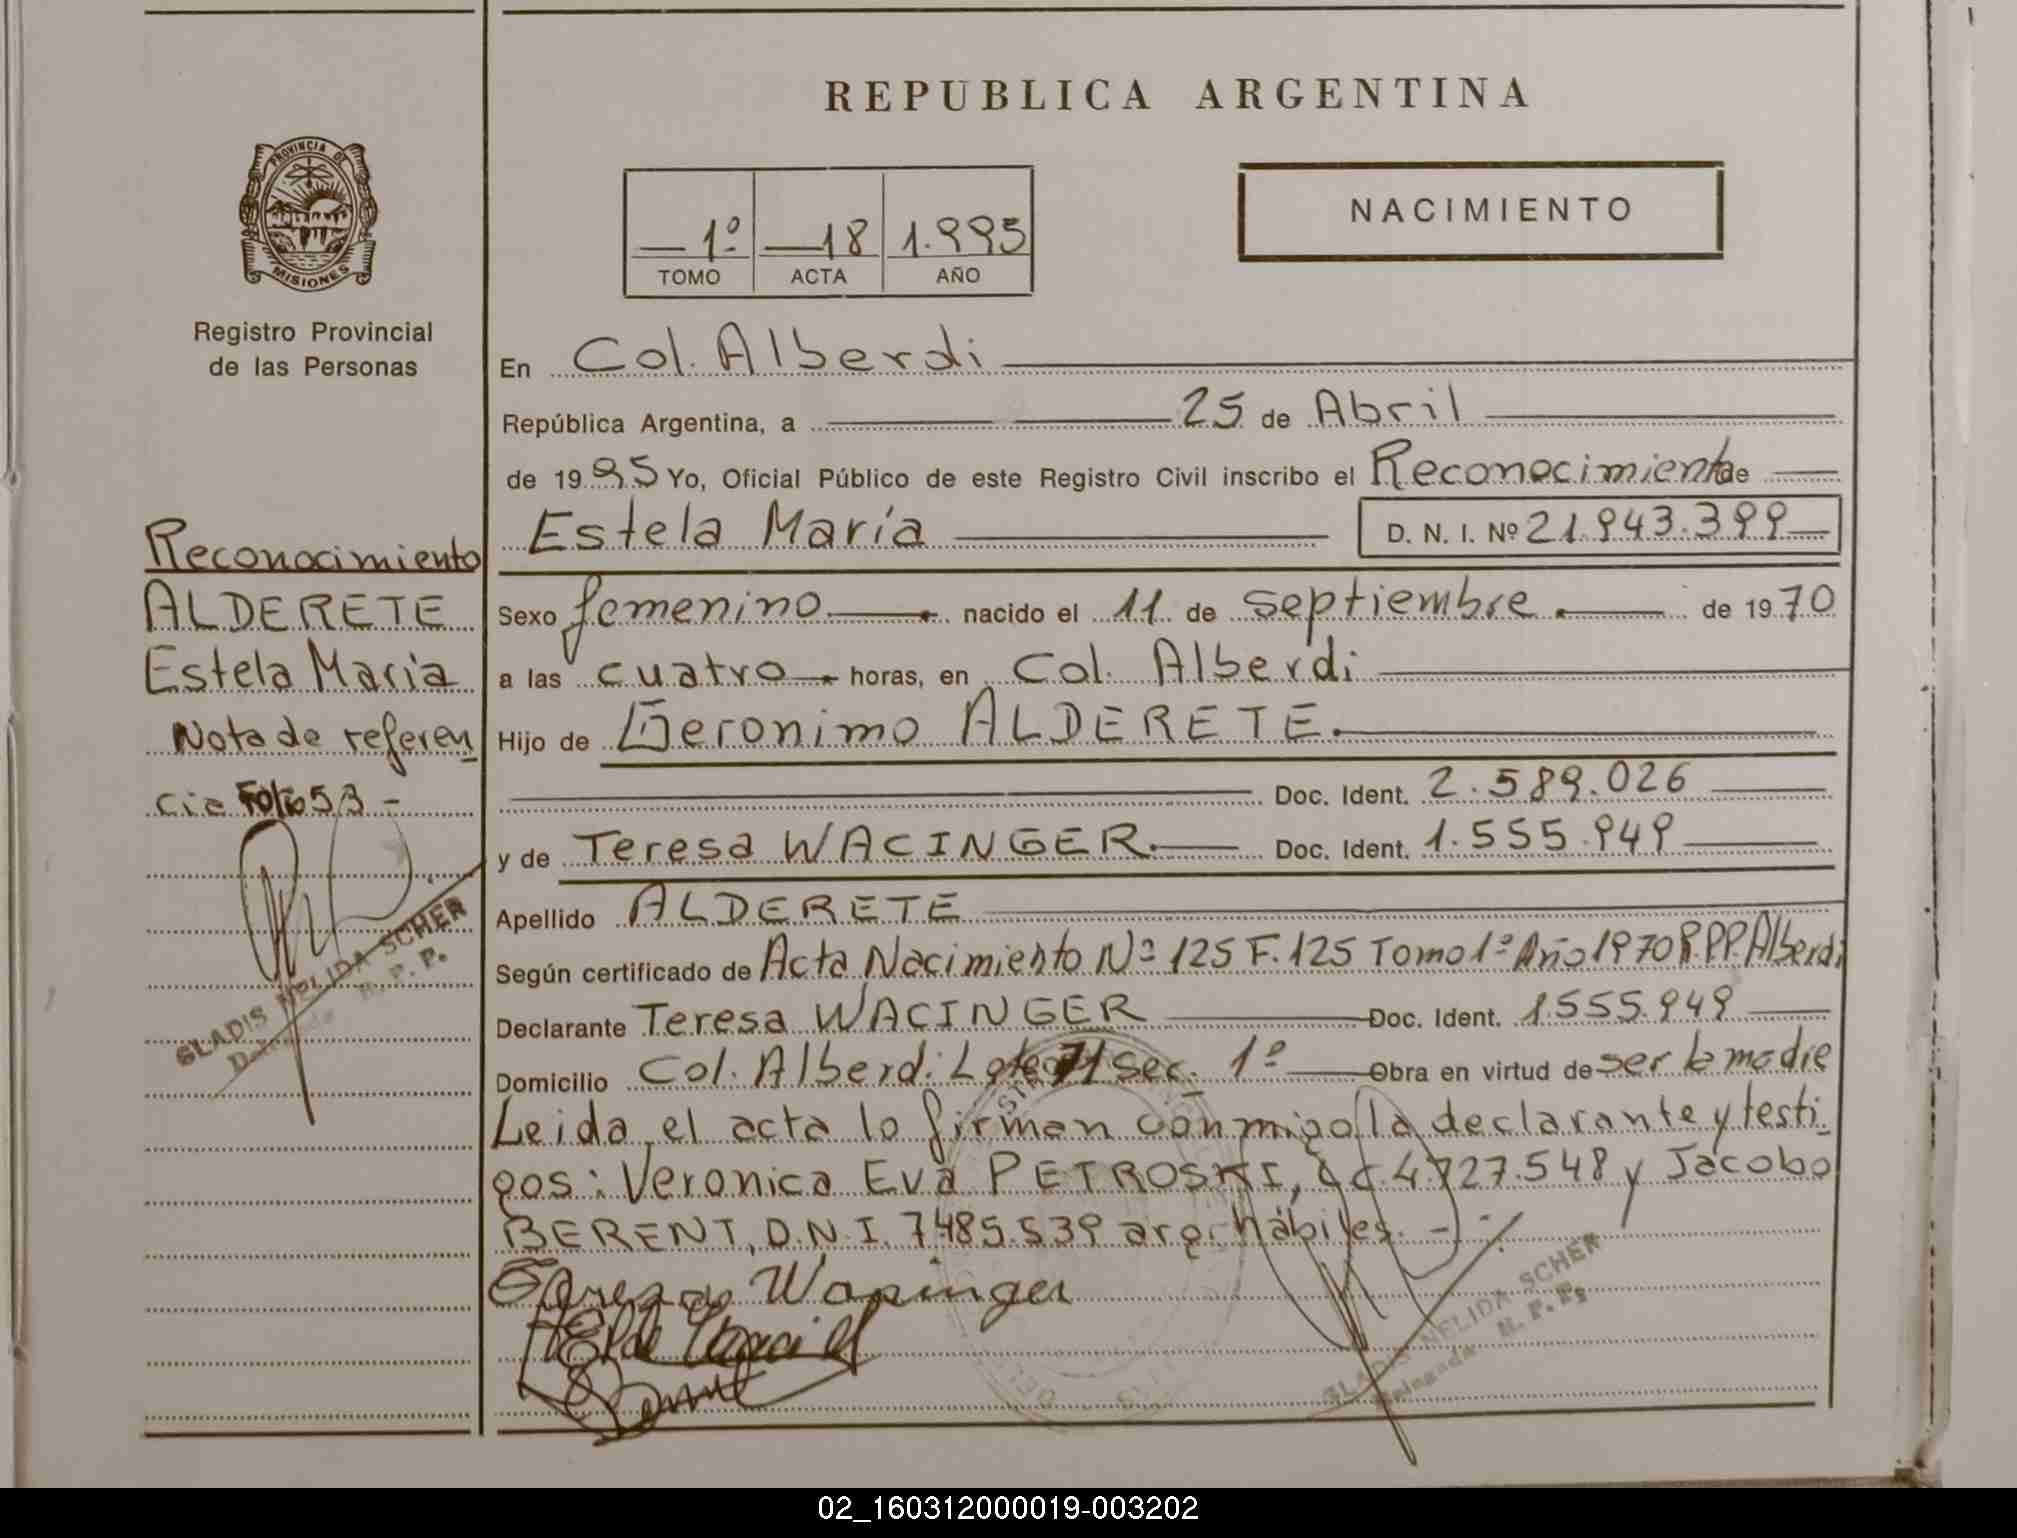 REPUBLICA ARGENTINA
PROVINCIA DE
MISIONES
Registro Provincial
de las Personas
1º 18 1.995
TOMO ACTA AÑO
NACIMIENTO
En Col. Alberdi
República Argentina, a 25 de Abril
de 1995 Yo, Oficial Público de este Registro Civil inscribo el Reconocimiento de
Estela María D. N. I. Nº 21.943.399
Reconocimiento
ALDERETE
Estela Maria
Nota de referen
cia Folio 53 -
GLADIS NELIDA SCHER
Delegada R. P. P.
Sexo femenino nacido el 11 de septiembre de 1970
a las cuatro horas, en Col. Alberdi
Hijo de Geronimo ALDERETE.
Doc. Ident. 2.589.026
y de Teresa WACINGER. Doc. Ident. 1.555.949
Apellido ALDERETE
Según certificado de Acta Nacimiento Nº 125 F. 125 Tomo 1º Año 1970 R.P.P. Alberdi
Declarante Teresa WACINGER Doc. Ident. 1.555.949
Domicilio Col. Alberdi Lote 71 sec. 1º Obra en virtud de ser la madre
Leida el acta lo firman conmigo la declarante y testi-
gos: Veronica Eva PETROSKI, L.C. 4.727.548 y Jacobo
BERENT, D.N.I. 7.485.539 arg. hábiles. -
Teresa Wacinger
GLADIS NELIDA SCHER
Delegada R. P. P.
02_160312000019-003202